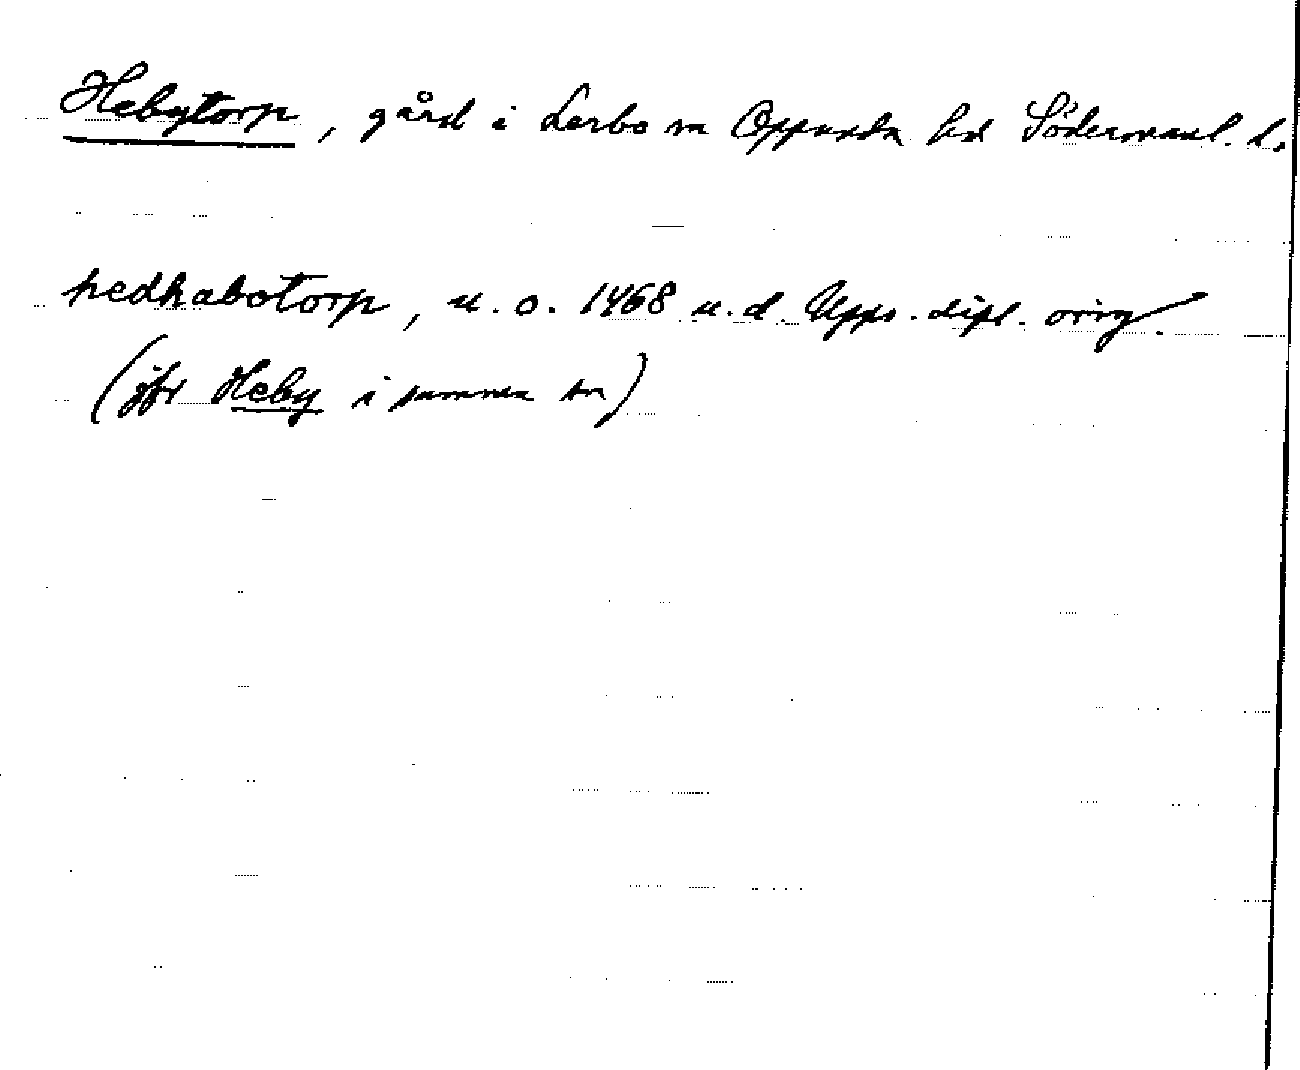 Hebytorp, gård i Lerbo sn Oppunda hd Södermanl. l.
hedhabotorp, u. o. 1468 u. d. Upps. dipl. orig.
(jfr Heby i samma sn)